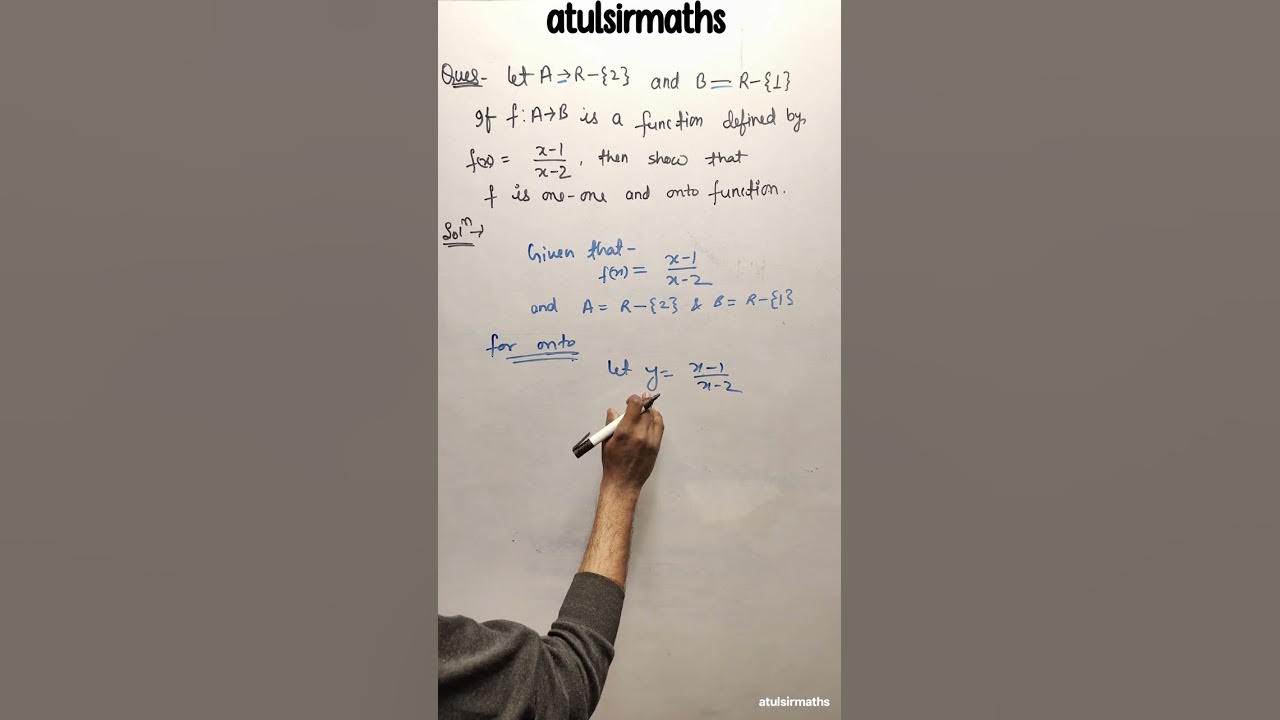 atulsirmaths
Ques- Let A → R-{2} and B = R-{1}
If f: A→B is a function defined by,
f(x) = x-1/x-2, then show that
f is one-one and onto function.
Solⁿ→
Given that-
f(x) = x-1/x-2
and A = R-{2} & B = R-{1}
for onto
let y = x-1/x-2
atulsirmaths